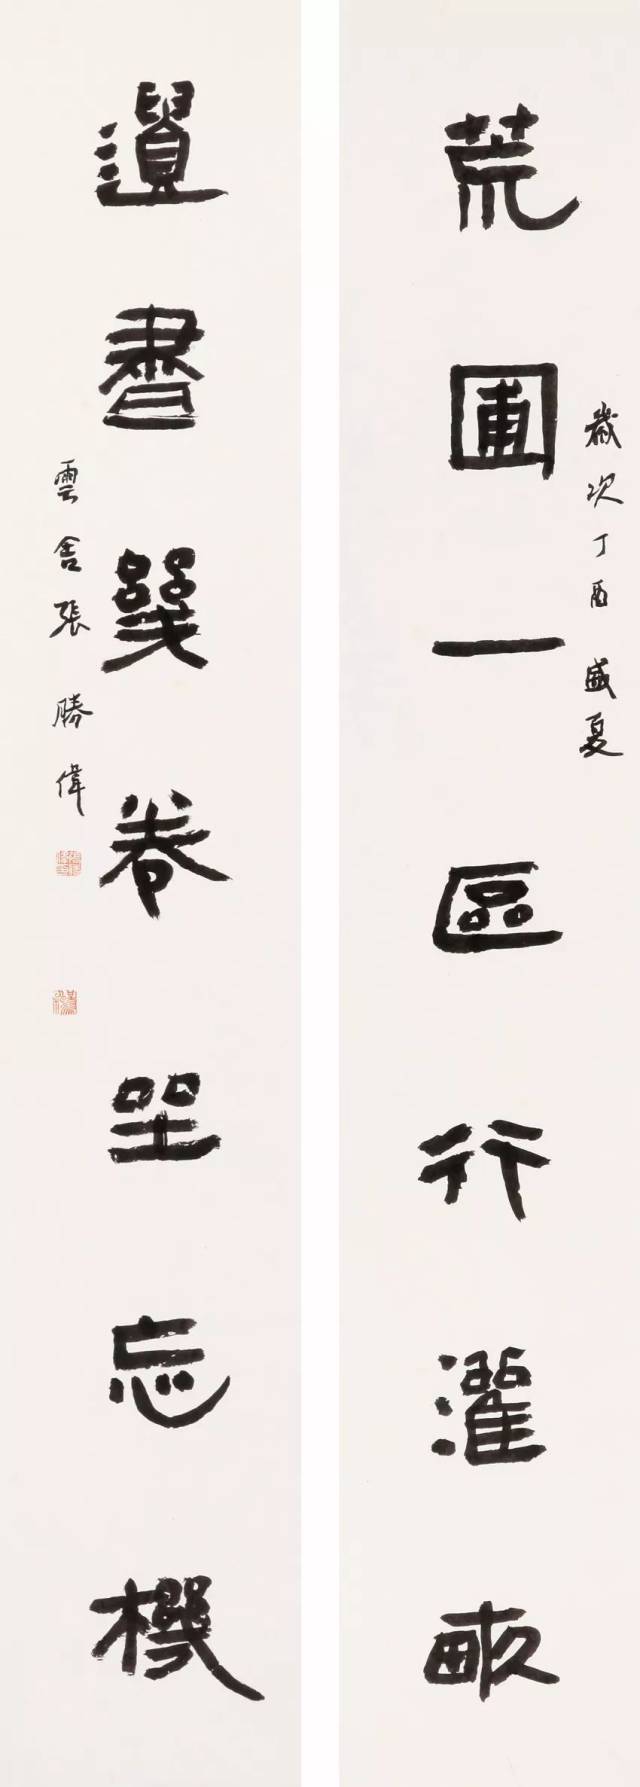 歲次丁酉盛夏
荒圃一區行灌畝
遺書幾卷坐忘機
雲舍張勝偉